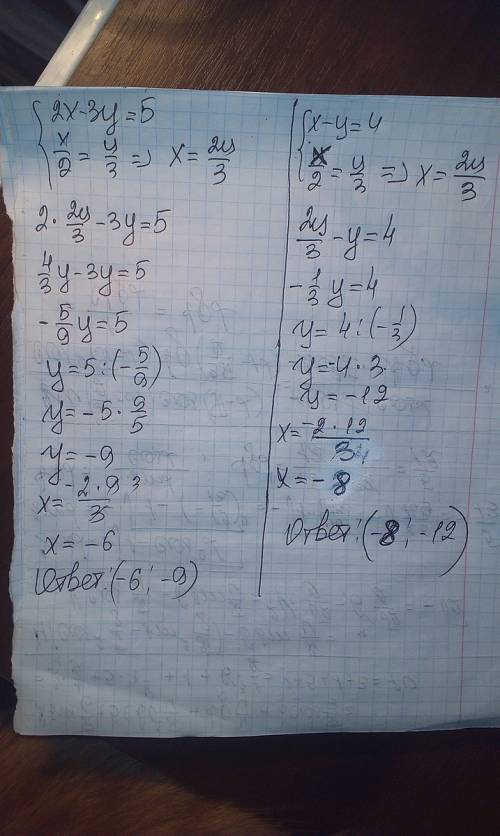 2x-3y=5
x/2 = y/3 => x = 2y/3
2 · 2y/3 - 3y = 5
4/3 y - 3y = 5
- 5/9 y = 5
y = 5 : (- 5/9)
y = -5 · 9/5
y = -9
x = -2·9 3/3
x = -6
Ответ: (-6; -9)
x-y=4
x/2 = y/3 => x = 2y/3
2y/3 - y = 4
- 1/3 y = 4
y = 4 : (- 1/3)
y = -4 · 3
y = -12
x = -2·12/3
x = -8
Ответ: (-8; -12)